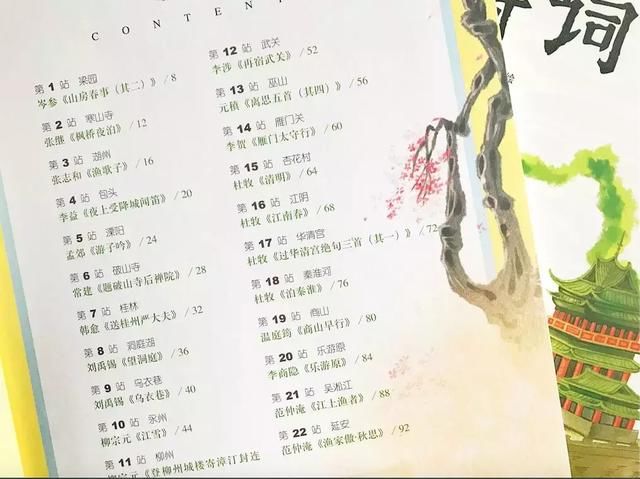 CONTEN
第 1 站 梁园
岑参《山房春事（其二）》/ 8
第 2 站 寒山寺
张继《枫桥夜泊》/ 12
第 3 站 湖州
张志和《渔歌子》/ 16
第 4 站 包头
李益《夜上受降城闻笛》/ 20
第 5 站 溧阳
孟郊《游子吟》/ 24
第 6 站 破山寺
常建《题破山寺后禅院》/ 28
第 7 站 桂林
韩愈《送桂州严大夫》/ 32
第 8 站 洞庭湖
刘禹锡《望洞庭》/ 36
第 9 站 乌衣巷
刘禹锡《乌衣巷》/ 40
第 10 站 永州
柳宗元《江雪》/ 44
第 11 站 柳州
柳宗元《登柳州城楼寄漳汀封连
第 12 站 武关
李涉《再宿武关》/ 52
第 13 站 巫山
元稹《离思五首（其四）》/ 56
第 14 站 雁门关
李贺《雁门太守行》/ 60
第 15 站 杏花村
杜牧《清明》/ 64
第 16 站 江阴
杜牧《江南春》/ 68
第 17 站 华清宫
杜牧《过华清宫绝句三首（其一）》/ 72
第 18 站 秦淮河
杜牧《泊秦淮》/ 76
第 19 站 商山
温庭筠《商山早行》/ 80
第 20 站 乐游原
李商隐《乐游原》/ 84
第 21 站 吴淞江
范仲淹《江上渔者》/ 88
第 22 站 延安
范仲淹《渔家傲·秋思》/ 92
词